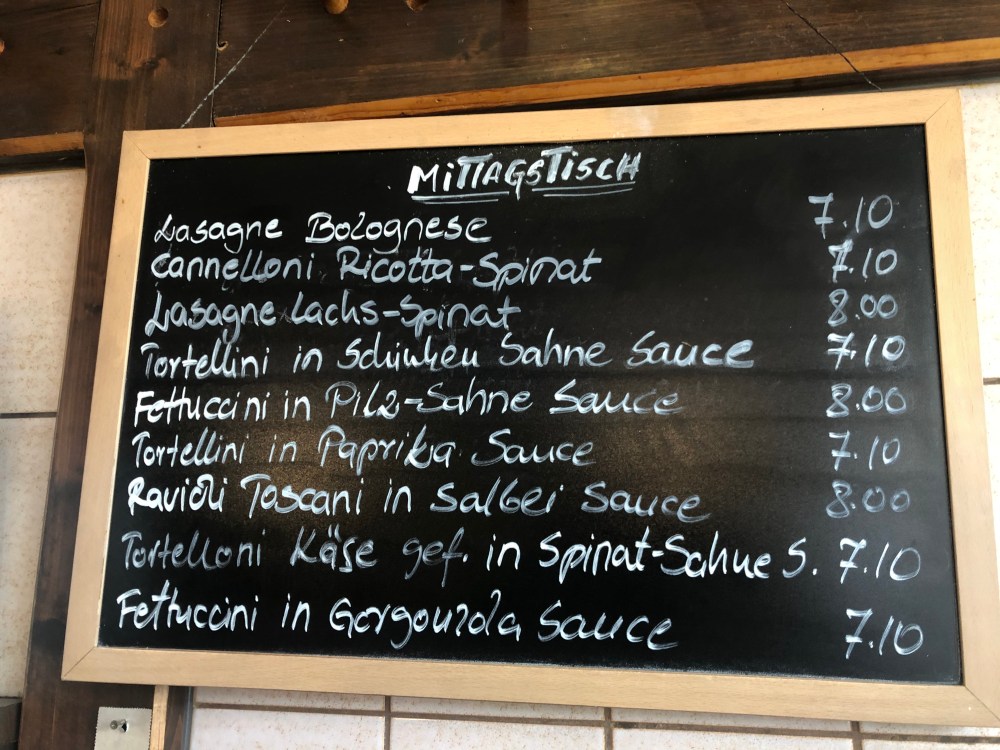 MiTTAGSTiSCH
Lasagne Bolognese 7.10
Cannelloni Ricotta-Spinat 7.10
Lasagne Lachs-Spinat 8.00
Tortellini in Schinken Sahne Sauce 7.10
Fettuccini in Pilz-Sahne Sauce 8.00
Tortellini in Paprika Sauce 7.10
Ravioli Toscani in Salbei Sauce 8.00
Tortelloni Käse gef. in Spinat-Sahne S. 7.10
Fettuccini in Gorgonzola Sauce 7.10